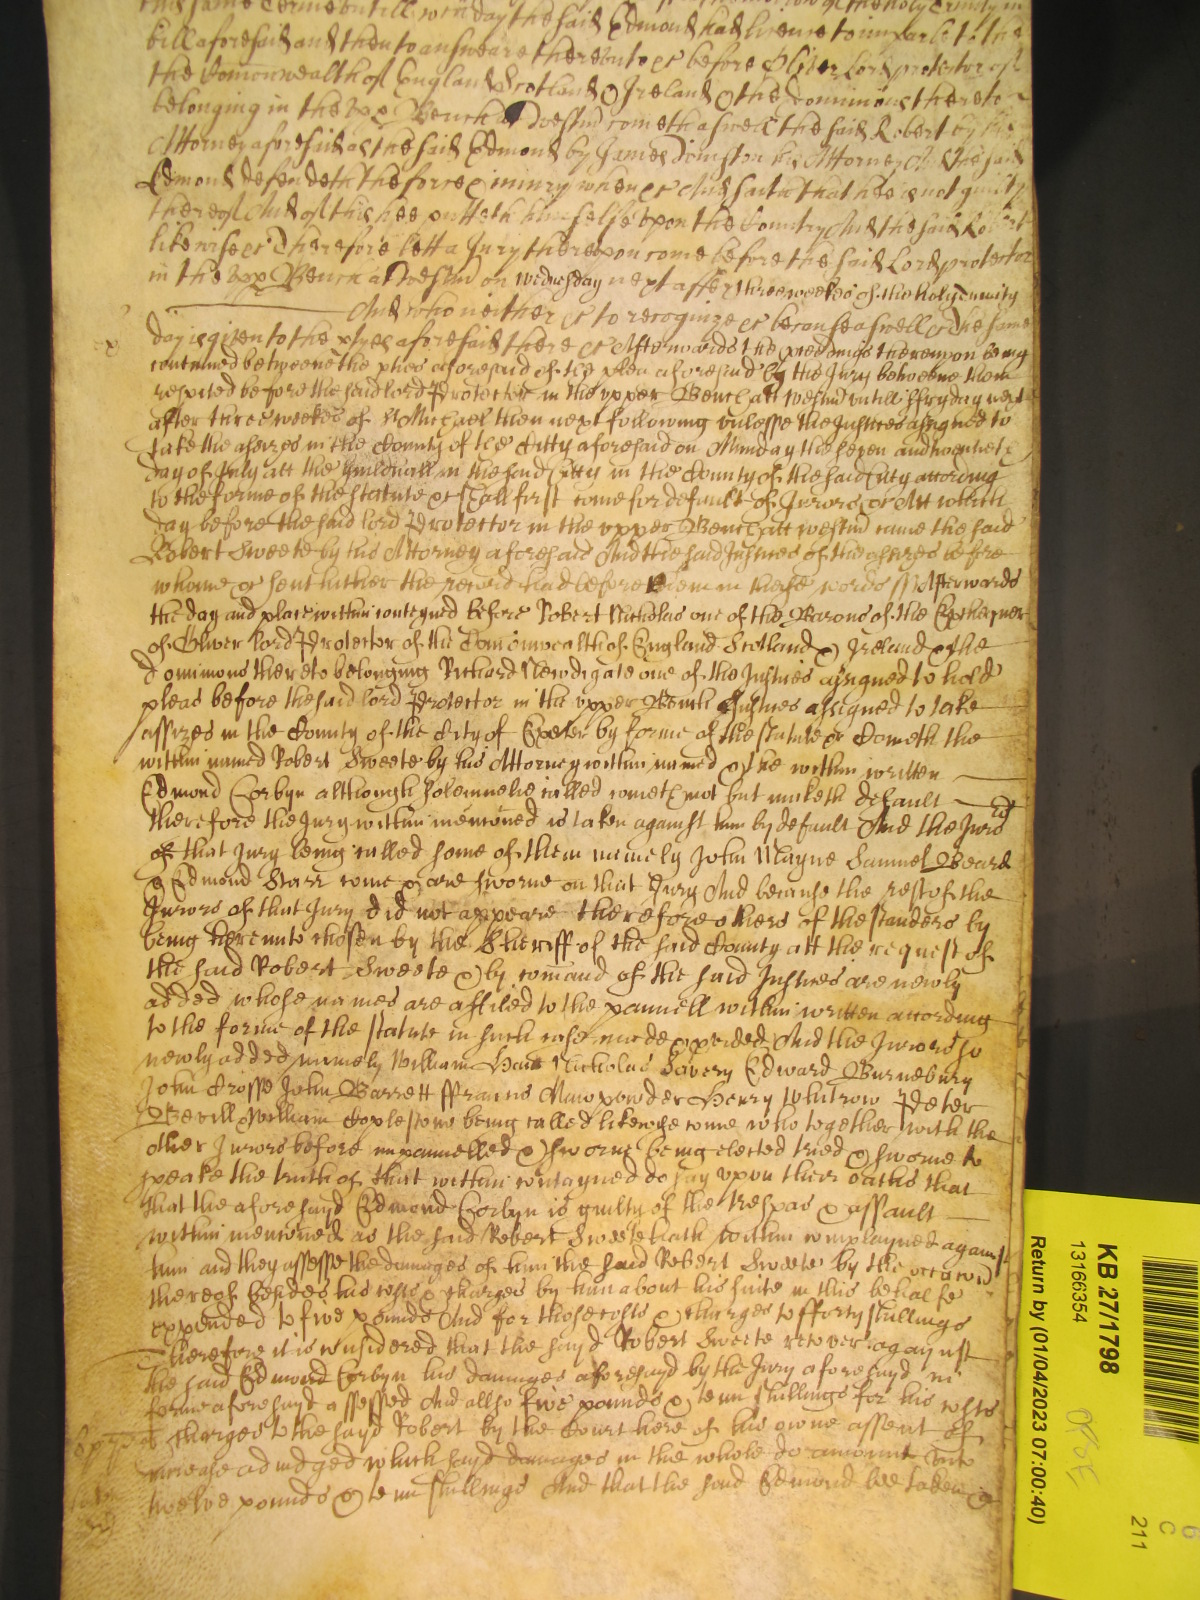 this same terme untill which day the said Edmond had licence to imparle to the
bill aforesaid and then to answeare thereunto &c before Oliver Lord protector of
the Comonwealth of England Scotland & Ireland & the dominions thereto
belonging in the upp Bench at Westmr cometh aswell the said Robert by his
Attorney aforesaid as the said Edmond by James his Attorney And the said
Edmond defendeth the force & iniury when &c And saith that hee is not guilty
thereof And of this hee putteth himselfe upon the Country And the said Robert
likewise &c Therefore lett a Jury thereupon come before the said Lord protector
in the upp Bench at Westmr on Wednesday next after three weekes of the holy Trinity
And who neither &c to recognize &c because aswell &c The same
day is given to the ptyes aforesaid there &c Afterwards the processe thereupon being
continued betweene the pties aforesaid of the plea aforesaid by the Jury betweene them
respited before the said lord Protector in the upper Bench att Westmr untill ffryday next
after three weekes of St Michael then next following unlesse the Justices assigned to
take the assizes in the County of the Citty aforesaid on Munday the seven and twentieth
day of July att the Guildhall in the said Citty in the County of the said City according
to the forme of the statute &c shall first come for default of Jurors &c Att which
day before the said lord Protector in the upper Bench att Westmr came the said
Robert Sweete by his Attorney aforesaid And the said Justices of the assizes before
whome &c sent hither the record had before them in these words ss Afterwards
the day and place within conteyned before Robert Nicholas one of the Barons of the Exchequer
of Oliver lord Protector of the Comonwealth of England Scotland & Ireland & the
dominions thereto belonging Richard Newdigate one of the Justices assigned to hold
pleas before the said lord Protector in the upper Bench Justices assigned to take
assizes in the County of the City of Exeter by forme of the statute &c Cometh the
within named Robert Sweete by his Attorney within named & the within written
Edmond Corbyn although solemnelie called cometh not but maketh default
therefore the Jury within mencioned is taken against him by default And the Jurors
of that Jury being called some of them namely John Mayne Samuel Beard
& Edmond Starr come & are sworne on that Jury And because the rest of the
Jurors of that Jury did not appeare therefore others of the standers by
being hereunto chosen by the Sheriff of the said County att the request of
the said Robert Sweete & by comand of the said Justices are newly
added whose names are affiled to the pannell within written according
to the forme of the statute in such case made & provided And the Jurors so
newly added namely William Nicholas Savery Edward Burnebury
John Crosse John Barrett ffrancis Mawpowder Henry Whitrow Peter
Bevill & William Coplestone being called likewise come who together with the
other Jurors before impannelled & sworne being elected tried & sworne to
speake the truth of that within contayned do say upon their oaths that
that the aforesayd Edmond Corbyn is guilty of the trespas & assault
within mencioned as the said Robert Sweete hath within complayned against
him and they assesse the damages of him the said Robert Sweete by the occation
thereof besides his costs & charges by him about his suite in this behalfe
expended to five pounds And for those costs & charges to fforty shillings
Therefore it is considered that the sayd Robert Sweete recover agaynst
the said Edmond Corbyn his damages aforesayd by the Jury aforesayd in
forme aforesayd assessed And allso five pounds & tenn shillings for his costs
& charges to the sayd Robert by the Court here of his owne assent of
increase adiudged which sayd damages in the whole do amount unto
twelve pounds & tenn shillings And that the said Edmond bee taken &c
KB 27/1798
13166354
Return by (01/04/2023 07:00:40)
211